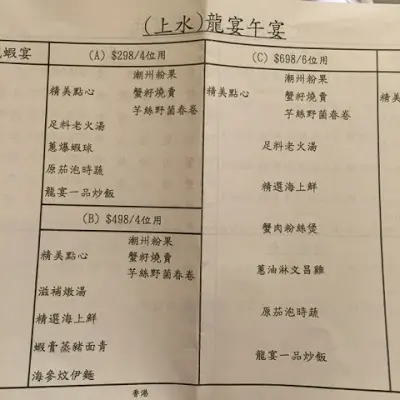 (上水)龍宴午宴
蝦宴
(A) $298/4位用
潮州粉果
精美點心 蟹籽燒賣
芋絲野菌春卷
足料老火湯
蔥爆蝦球
原茄泡時蔬
龍宴一品炒飯
(B) $498/4位用
潮州粉果
精美點心 蟹籽燒賣
芋絲野菌春卷
滋補燉湯
精選海上鮮
蝦膏蒸豬面青
海參炆伊麵
(C) $698/6位用
潮州粉果
精美點心 蟹籽燒賣
芋絲野菌春卷
足料老火湯
精選海上鮮
蟹肉粉絲煲
蔥油淋文昌雞
原茄泡時蔬
龍宴一品炒飯
精美
香港